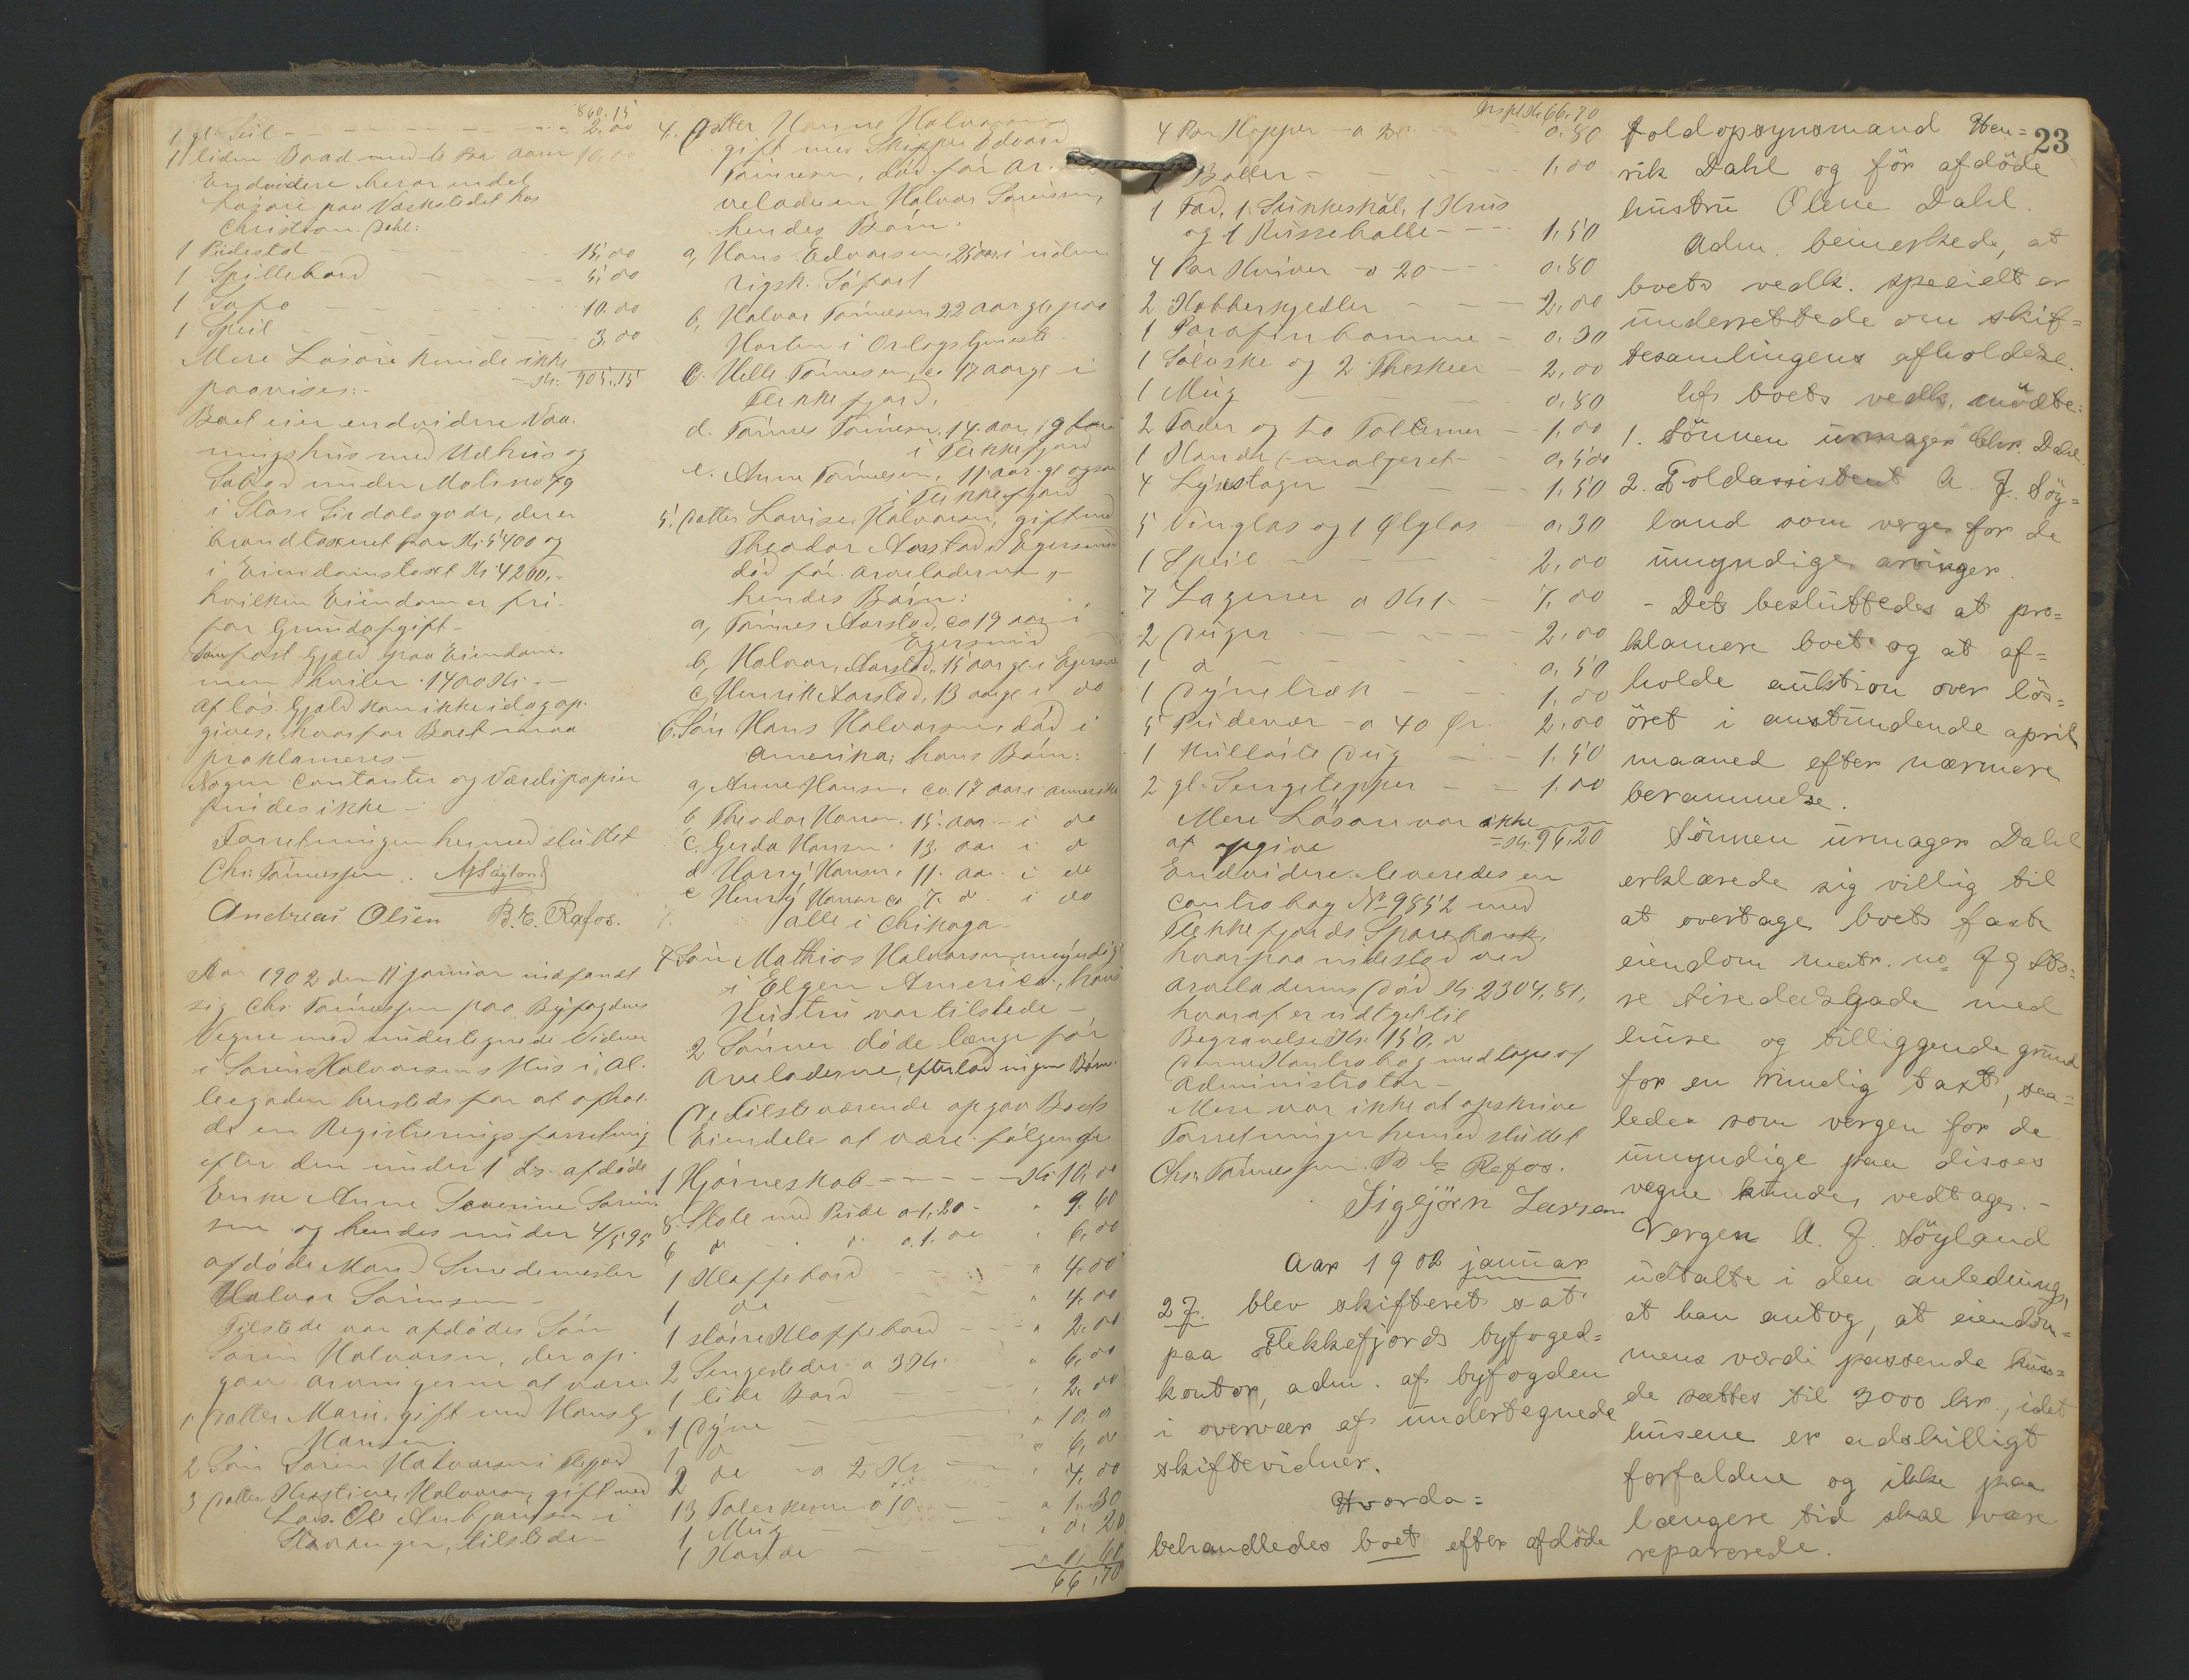 860.15
1 gl. Seil - - - 2,00
1 liden Baad med to Par Aarer 10,00
Endvidere heror endel
Løsøre paa Værkstedet hos
Christian Dahl:
1 Pidestal - 15,00
1 Spillebord - 5,00
1 Sofa - 10.00
1 Speil - 3,00
Mere Løsøre kunde ikke
paavises:- Kr. 905,15
Boet eier endvidere Vaa-
ningshus med Udhus og
Søbod under Matr. no 79
i Store Sirdalsgade, der er
brandtaxeret for Kr. 5400 og
i Eiendomstaxt Kr 4200,-
hvilken Eiendom er fri
for Grundafgift -
Som fast Gjæld paa Eiendom-
men hviler 1400 Kr. -
Af løs Gjæld kan ikke idag op-
gives, hvorfor Boet maa
proklameres -
Nogen Contanter og Værdipapirer
fandtes ikke -
Forretningen hermed sluttet
Chr. Tønnessen. AJ Søyland
Andreas Olsen B. E. Rafos.
Aar 1902 den 11 januar indfandt
sig Chr Tønnessen paa Byfogdens
Vegne med undertegnede Vidner
i Søren Halvorsens Hus i Al-
leegaden hersteds for at afhol-
de en Registreringsforretning
efter den under 1 ds. afdøde
Enke Anne Severine Søren-
sen og hendes under 4/5 95
afdøde Mand Smedemester
Halvor Sørensen -
Tilstede var afdødes Søn
Søren Halvorsen, der op-
gav arvingerne at være
1 Datter Marie, gift med Hans
Hansen.
2 Søn Søren Halvorsen i Flefjord
3 Datter Kristine Halvorsen, gift med
Lods. Ole Aabjørnsen i
Stavanger, tilstede -
4. Datter Hanne Halvorsen
gift med Skipper Edvard
Tønnesen, død før Ar-
veladeren Halvor Sørensen,
hendes Børn:
a, Hans Edvardsen 25 aar i uden-
rigsk. Søfart
b, Halvor Tønnesen 22 aar gl, paa
Horten i Orlogstjeneste
c. Helle Tønnesen, ca 17 aar gl i
Flekkefjord,
d. Tønnes Tønnesen, 14 aar,
i Flekkefjord
e. Anne Tønnesen, 11 aar gl ogsaa
i Flekkefjord
5. Datter Lovise Halvorsen, gift med
Theodor Aarstad i Egersund
død før Arveladerne,-
hendes Børn:
a, Tønnes Aarstad, ca 19 aar i
Egersund
b, Halvor Aarstad, 15 aar gl i Egersund
c, Henrik Aarstad, 13 aar gl i do
6. Søn Hans Halvorsen, død i
Amerika; hans Børn:
a, Anne Hansen, ca 17 aar i Amerika
b Theodor Hansen. 15. aar i do
c. Gerda Hansen. 13. aar i do
d Harry Hansen, 11. aar i do
e Henry Hansen ca 7. do i do
alle i Chikago -
7 Søn Mathias Halvorsen, myndig
i Elgen America, hans
Hustru var tilstede -
2 Sønner døde længe før
Arveladerne, efterlod ingen Børn.
De Tilstedeværende opgav Boets
Eiendele at være følgende
1 Hjørneskab - - - Kr 10,00
8 Stole med Pude a 1,20 - " 9.60
6 do - do a. 1.00 " 6,00
1 Klaffebord - " 4,00
1 do - " 4,00
1 større Klaffebord - " 2,00
2 Sengesteder a 3 Kr. " 6,00
1 lide Bord - " 2,00
1 Dyne - " 10,00
1 do - " 6,00
2 do - a 2 Kr - " 4,00
13 Talerkener a 10 - " 1,30
1 Mug - " 0,20
1 Kande - " 1,60
66,70
Transpt. Kr 66,70
4 Par Kopper - a 20 - 0.80
2 Boller - 1,00
1 Fad, 1. Sukkerskål, 1 Krus
og 1 Kusseballe - 1,50
4 Par Kniver a 20 - 0.80
2 Kobberkjedler - 2,00
1 Parafinkamme - 0,30
1 Sølvske og 2 Theskeer - 2,00
1 Mug - 0,80
2 Fader og to Tallerner - 1,00
1 Kande (malgeret - 0,500
4 Lysestager - 1,50
5 Vinglas og 1 Ølglas - 0,30
1 Speil - 2,00
7 Lagener a Kr 1 - 7,00
2 Duger - 2,00
1 do - 0,50
1 Dynetræk - 1,00
5 Pudevar - a 40 Ør. 2,00
1 Dug - 1,50
2 gl. Sengetepper - 1.00
Mere Løsøre var ikke
at opgive = Kr. 96,20
Endvidere leveredes en
Contrabog No 9852 med
Flekkefjords Sparebank,
hvorpaa indestod ved
Arveladerens Død Kr. 2304,81,
hvoraf er udtget til
Begravelse Kr. 150,00
Denne Kontrabog medtoges af
Administrator -
Mere var ikke at opskrive
Forretningen hermed sluttet
Chr. Tønnessen. B E Rafos.
Sigbjörn Larsen
Aar 1902 januar
27. blev skifteret sat
paa Flekkefjords byfoged=
kontor, adm. af byfogden
i overvær af undertegnede
skiftevidner.
Hvorda=
behandledes boet efter afdöde
23
toldopsynsmand Hen=
rik Dahl og för afdöde
hustru Oline Dahl.
Adm. bemerkede, at
boets vedk. specielt er
underrettede om skif=
tesamlingens afholdelse.
Af boets vedk. mödte:
1. Sönnen urmager Chr. Dahl.
2. Toldassistent A. J. Söy=
land som verge for de
umyndige arvinger.
- Det besluttedes at pro=
klamere boet og at af=
holde auktion over lös=
öret i anstundende april
maaned efter nærmere
berammelse.
Sönnen urmager Dahl
erklærede sig villig til
at overtage boets faste
eiendom matr. no 79 Sto=
re Siredalsgade med
huse og tilliggende grund
for en rimelig taxt, saa=
ledes som vergen for de
umyndige paa disses
vegne kunde vedtage. -
Vergen A. J. Söyland
udtalte i den anledning,
at han antog, at eiendom=
mens værdi passende kun=
de sættes til 3000 kr., idet
husene er adskilligt
forfaldne og ikke paa
længere tid skal være
reparerede.